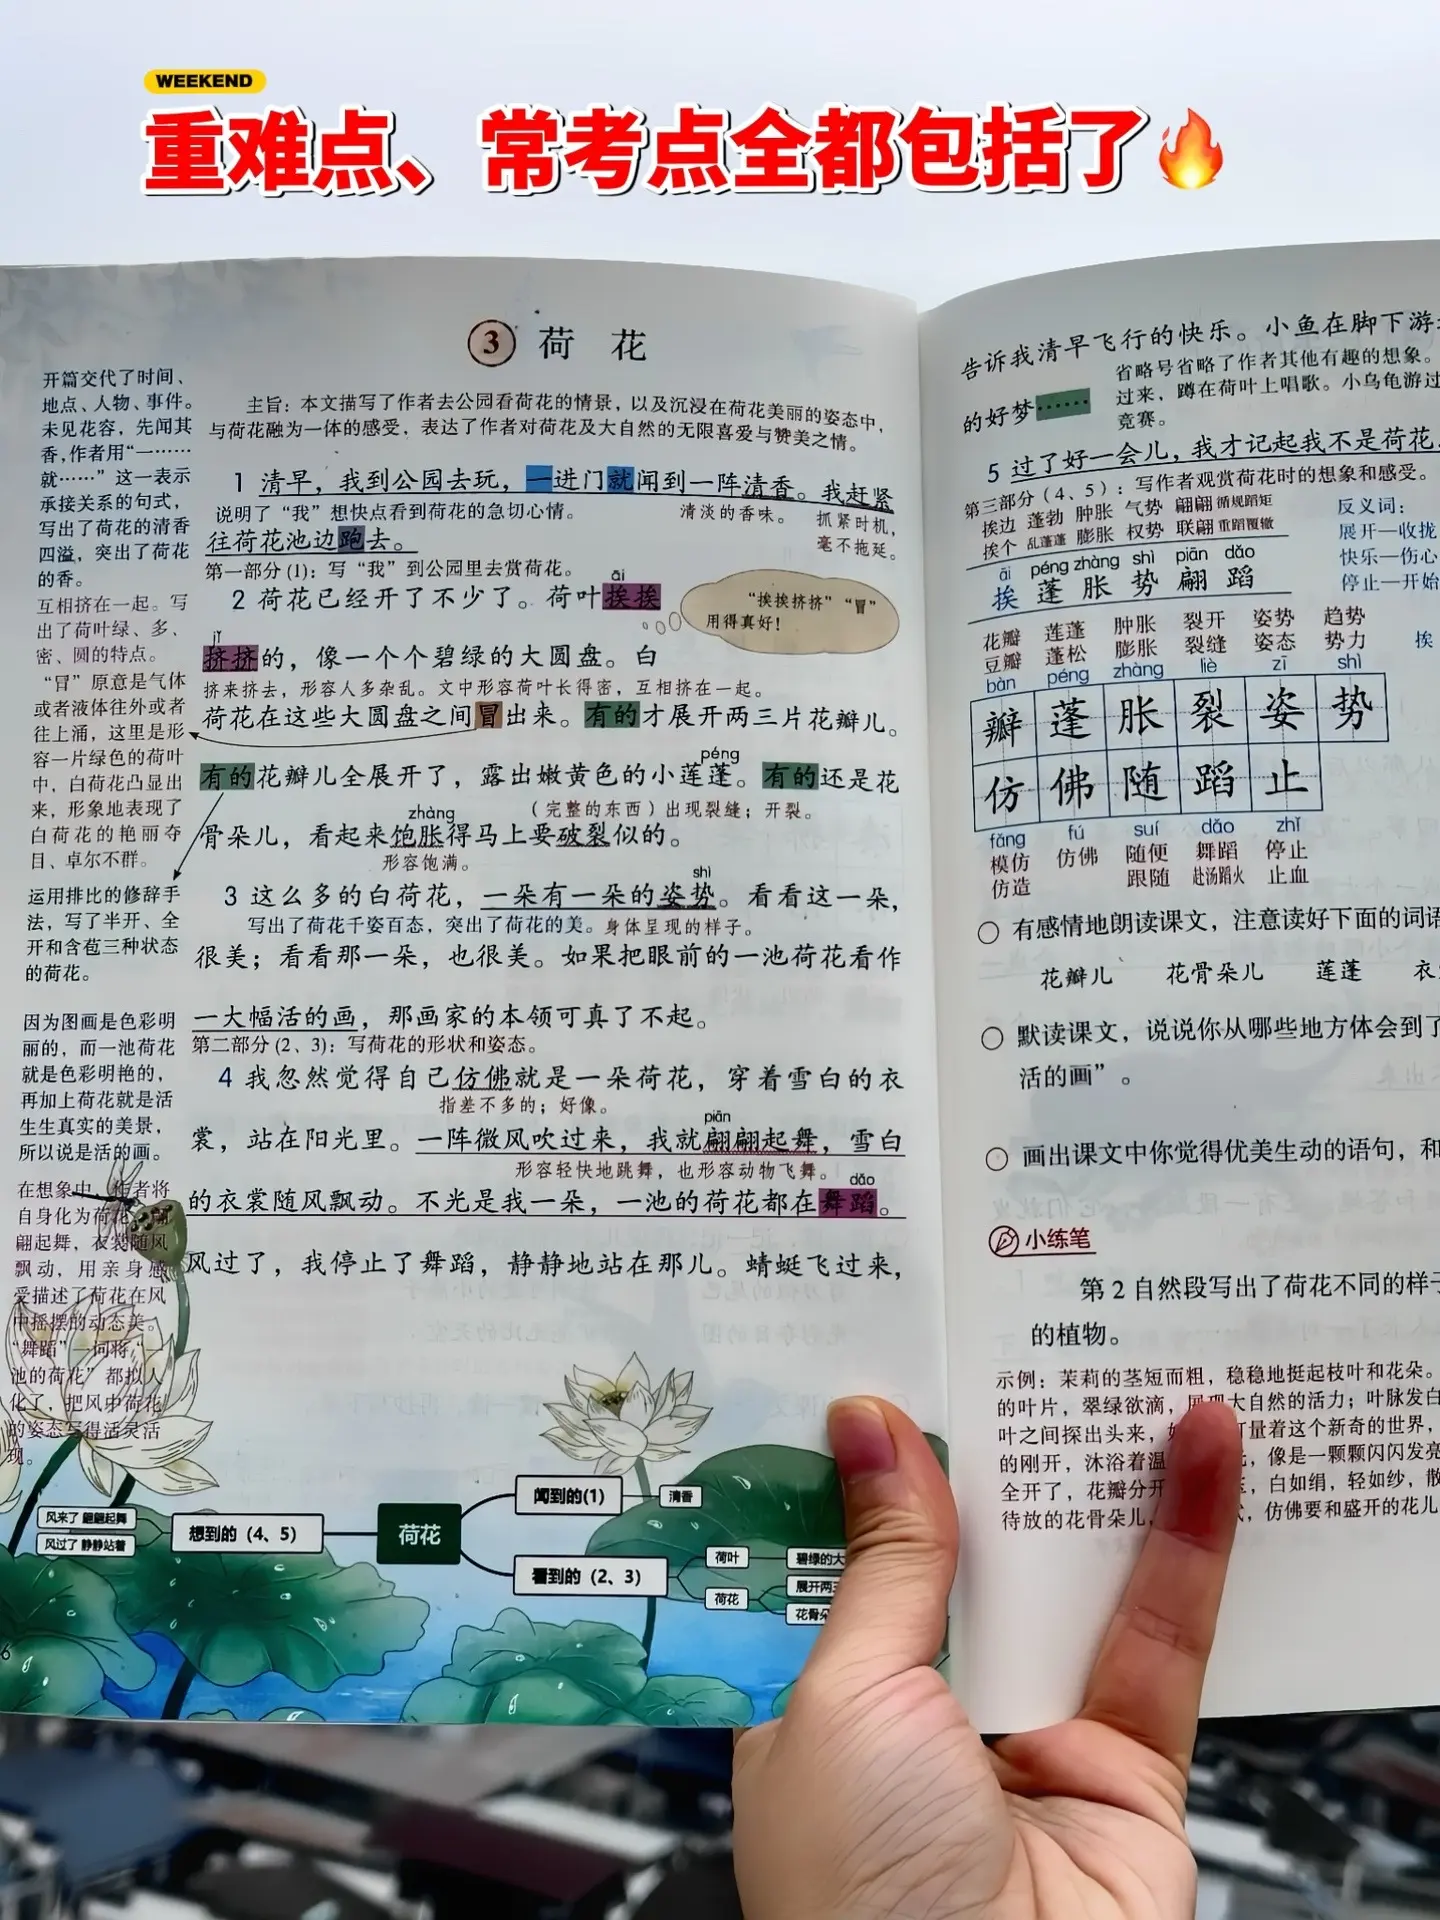 WEEKEND
重难点、常考点全都包括了
3 荷花
开篇交代了时间、
地点、人物、事件。
未见花容，先闻其
香，作者用“一……
就……”这一表示
承接关系的句式，
写出了荷花的清香
四溢，突出了荷花
的香。
互相挤在一起。写
出了荷叶绿、多、
密、圆的特点。
“冒”原意是气体
或者液体往外或者
往上涌，这里是形
容一片绿色的荷叶
中，白荷花凸显出
来，形象地表现了
白荷花的艳丽夺
目、卓尔不群。
运用排比的修辞手
法，写了半开、全
开和含苞三种状态
的荷花。
因为图画是色彩明
丽的，而一池荷花
就是色彩明艳的，
再加上荷花就是活
生生真实的美景，
所以说是活的画。
在想象中，作者将
自身化为荷花，翩
翩起舞，衣裳随风
飘动，用亲身感
受描述了荷花在风
中摇摆的动态美。
“舞蹈”一词将“一
池的荷花”都拟人
化了，把风中荷花
的姿态写得活灵活
现。
主旨：本文描写了作者去公园看荷花的情景，以及沉浸在荷花美丽的姿态中，
与荷花融为一体的感受，表达了作者对荷花及大自然的无限喜爱与赞美之情。
1 清早，我到公园去玩，一进门就闻到一阵清香。我赶紧
说明了“我”想快点看到荷花的急切心情。 清淡的香味。 抓紧时机，
毫不拖延。
往荷花池边跑去。
第一部分(1)：写“我”到公园里去赏荷花。
āi
2 荷花已经开了不少了。荷叶挨挨
“挨挨挤挤”“冒”
用得真好！
jǐ
挤挤的，像一个个碧绿的大圆盘。白
挤来挤去，形容人多杂乱。文中形容荷叶长得密，互相挤在一起。
荷花在这些大圆盘之间冒出来。有的才展开两三片花瓣儿。
péng
有的花瓣儿全展开了，露出嫩黄色的小莲蓬。有的还是花
zhàng （完整的东西）出现裂缝；开裂。
骨朵儿，看起来饱胀得马上要破裂似的。
形容饱满。
shì
3 这么多的白荷花，一朵有一朵的姿势。看看这一朵，
写出了荷花千姿百态，突出了荷花的美。身体呈现的样子。
很美；看看那一朵，也很美。如果把眼前的一池荷花看作
一大幅活的画，那画家的本领可真了不起。
第二部分(2、3)：写荷花的形状和姿态。
4 我忽然觉得自己仿佛就是一朵荷花，穿着雪白的衣
指差不多的；好像。
piān
裳，站在阳光里。一阵微风吹过来，我就翩翩起舞，雪白
形容轻快地跳舞，也形容动物飞舞。
dǎo
的衣裳随风飘动。不光是我一朵，一池的荷花都在舞蹈。
风过了，我停止了舞蹈，静静地站在那儿。蜻蜓飞过来，
风来了 翩翩起舞
风过了 静静站着
想到的（4、5）
荷花
闻到的(1)
清香
看到的（2、3）
荷叶
碧绿的大
荷花
展开两三
花骨朵
6
告诉我清早飞行的快乐。小鱼在脚下游
省略号省略了作者其他有趣的想象。
过来，蹲在荷叶上唱歌。小乌龟游过
竞赛。
的好梦……
5 过了好一会儿，我才记起我不是荷花，
第三部分（4、5）：写作者观赏荷花时的想象和感受。
挨边 蓬勃 肿胀 气势 翩翩 循规蹈矩
挨个 乱蓬蓬 膨胀 权势 联翩 重蹈覆辙
反义词：
展开—收拢
快乐—伤心
停止—开始
āi péng zhàng shì piān dǎo
挨 蓬 胀 势 翩 蹈
花瓣 莲蓬 肿胀 裂开 姿势 趋势
豆瓣 蓬松 膨胀 裂缝 姿态 势力
挨
bàn péng zhàng liè zī shì
瓣 蓬 胀 裂 姿 势
仿 佛 随 蹈 止
fǎng fú suí dǎo zhǐ
模仿 仿佛 随便 舞蹈 停止
仿造 跟随 赴汤蹈火 止血
有感情地朗读课文，注意读好下面的词语
花瓣儿 花骨朵儿 莲蓬 衣
默读课文，说说你从哪些地方体会到了
活的画”。
画出课文中你觉得优美生动的语句，和
小练笔
第 2 自然段写出了荷花不同的样子
的植物。
示例：茉莉的茎短而粗，稳稳地挺起枝叶和花朵。
的叶片，翠绿欲滴，展现大自然的活力；叶脉发白
叶之间探出头来，打量着这个新奇的世界，
的刚开，沐浴着温，像是一颗颗闪闪发亮
全开了，花瓣分开，白如绢，轻如纱，散
待放的花骨朵儿，，仿佛要和盛开的花儿